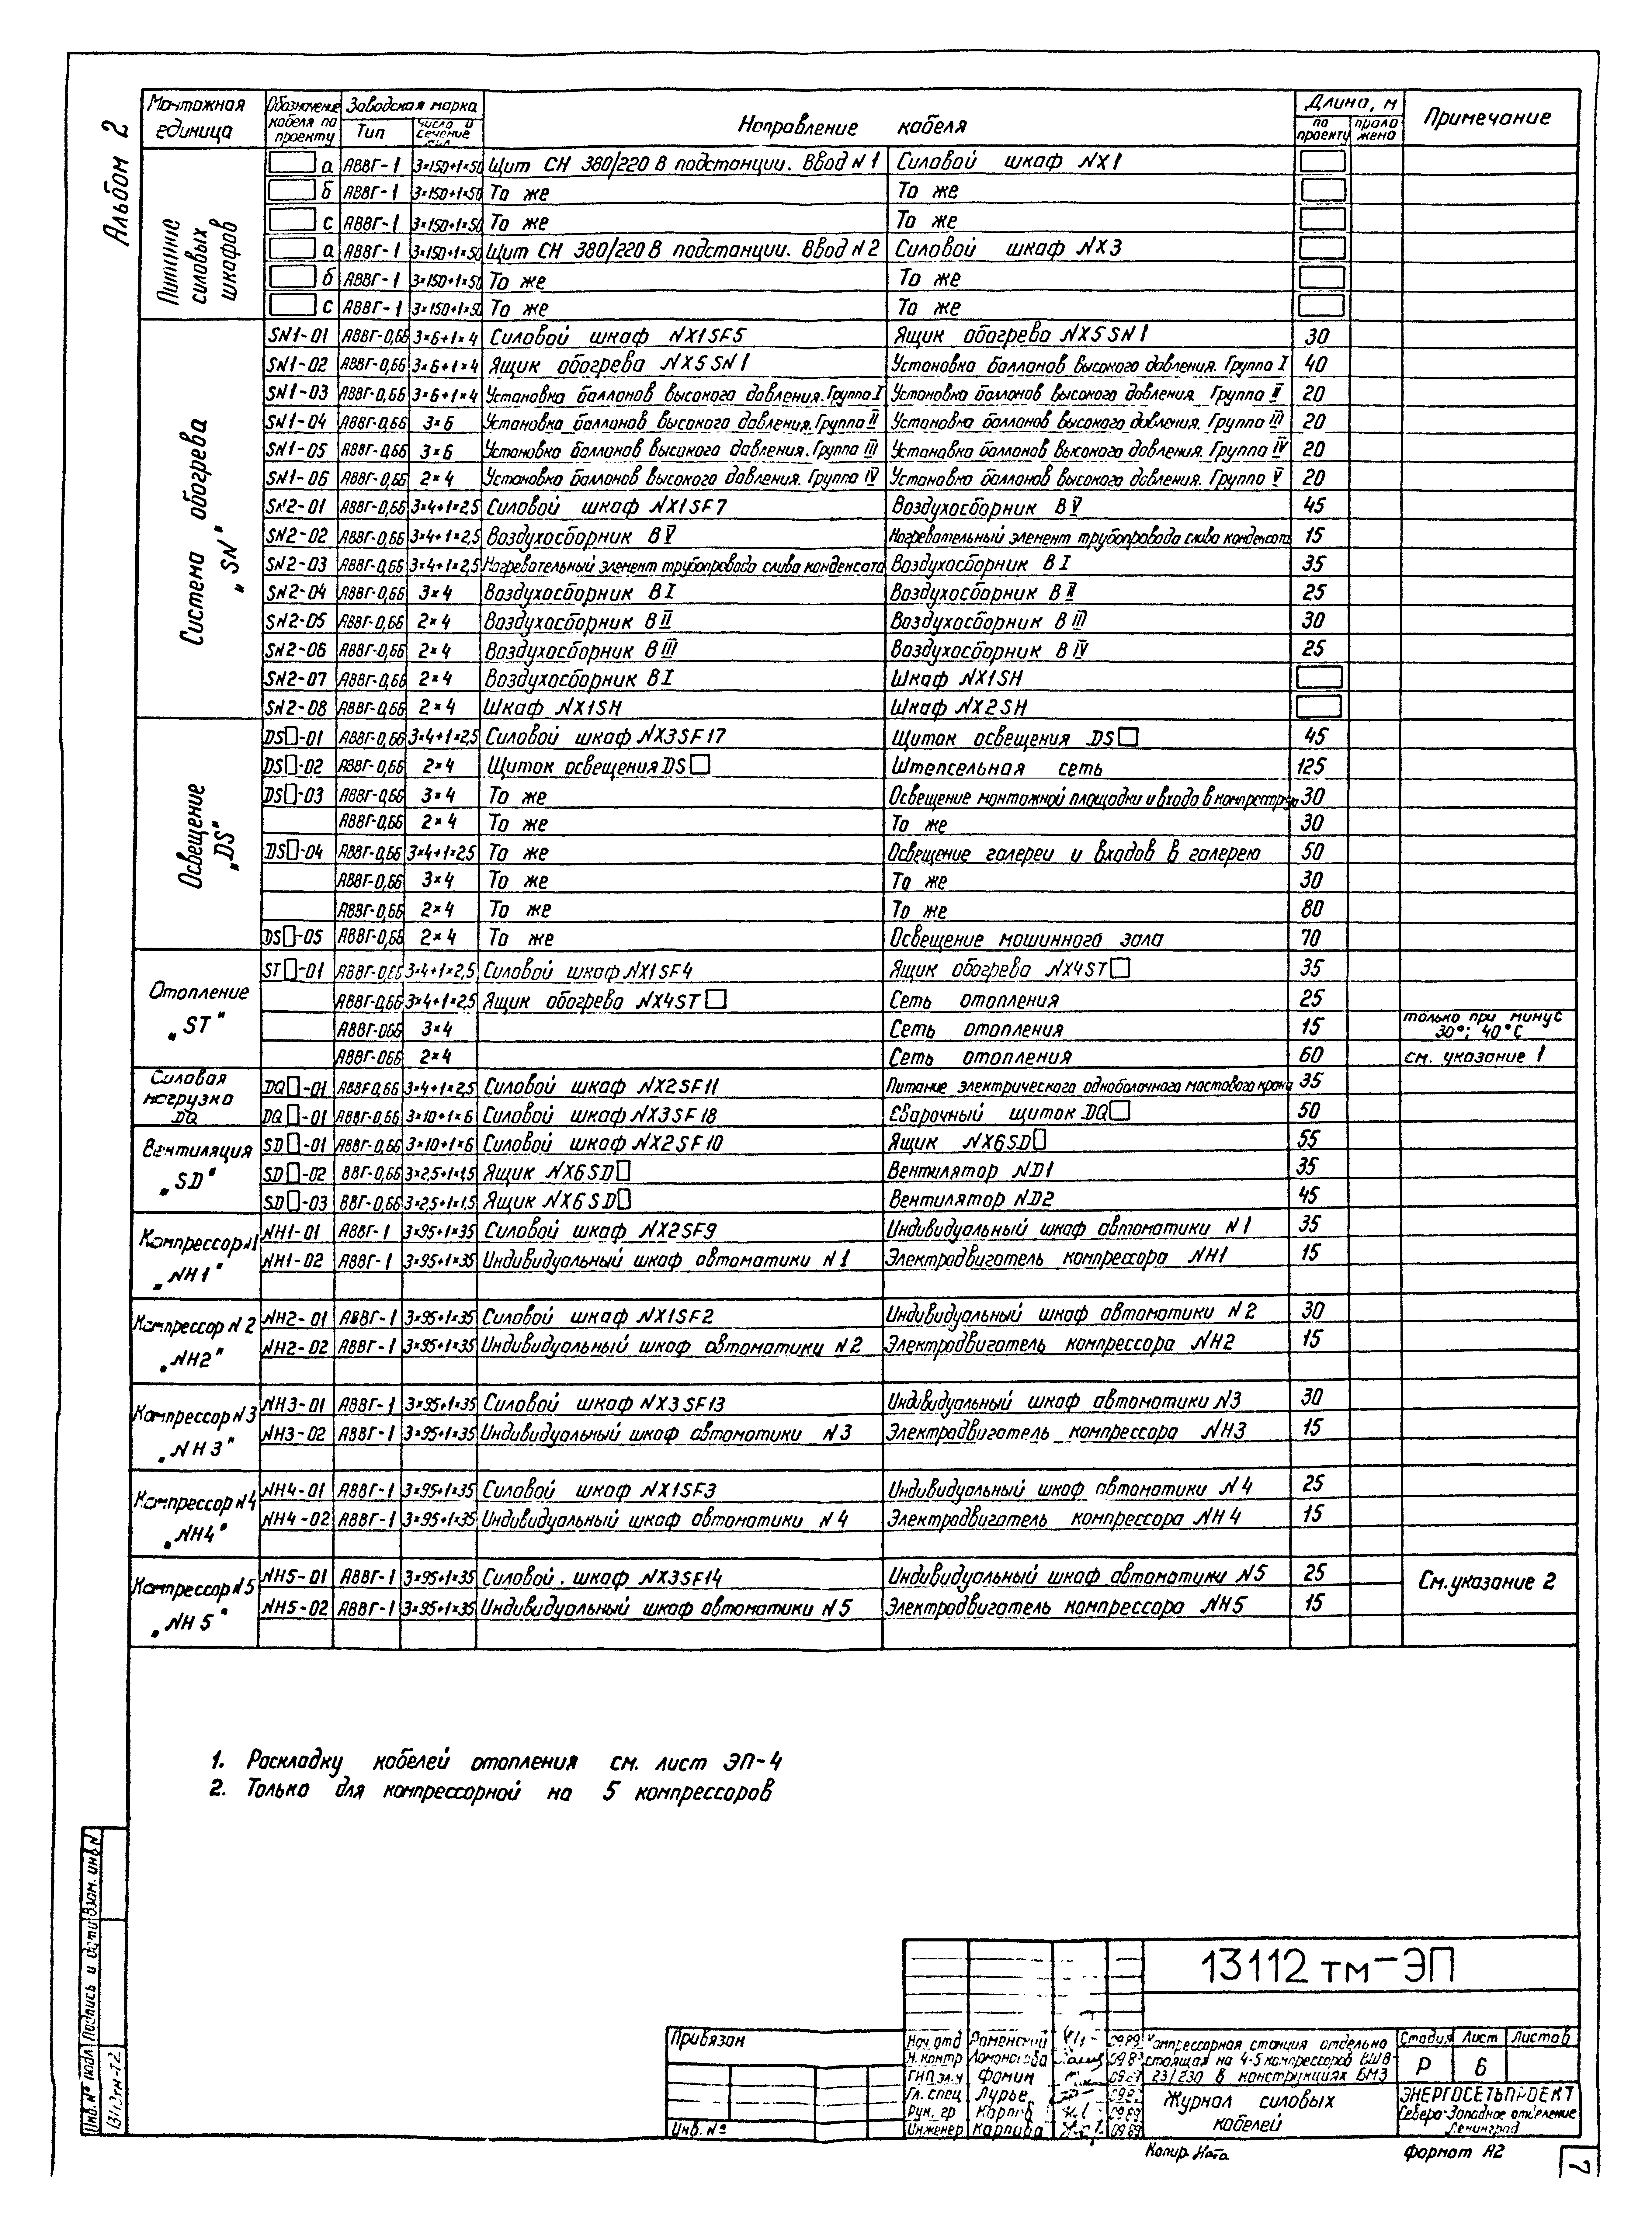 Альбом 2
Монтажная единица | Обозначение кабеля по проекту | Заводская марка | Направление кабеля | Длина, м | Примечание
Тип | Число и сечение жил | по проекту | проложено
Питание силовых шкафов
а АВВГ-1 3×150+1×50 Щит СН 380/220 В подстанции. Ввод N1 Силовой шкаф NX1
б АВВГ-1 3×150+1×50 То же То же
с АВВГ-1 3×150+1×50 То же То же
а АВВГ-1 3×150+1×50 Щит СН 380/220 В подстанции. Ввод N2 Силовой шкаф NX3
б АВВГ-1 3×150+1×50 То же То же
с АВВГ-1 3×150+1×50 То же То же
Система обогрева „SN"
SN1-01 АВВГ-0,66 3×6+1×4 Силовой шкаф NX1SF5 Ящик обогрева NX5SN1 30
SN1-02 АВВГ-0,66 3×6+1×4 Ящик обогрева NX5SN1 Установка баллонов высокого давления. Группа I 40
SN1-03 АВВГ-0,66 3×6+1×4 Установка баллонов высокого давления. Группа I Установка баллонов высокого давления. Группа II 20
SN1-04 АВВГ-0,66 3×6 Установка баллонов высокого давления. Группа II Установка баллонов высокого давления. Группа III 20
SN1-05 АВВГ-0,66 3×6 Установка баллонов высокого давления. Группа III Установка баллонов высокого давления. Группа IV 20
SN1-06 АВВГ-0,66 2×4 Установка баллонов высокого давления. Группа IV Установка баллонов высокого давления. Группа V 20
SN2-01 АВВГ-0,66 3×4+1×2,5 Силовой шкаф NX1SF7 Воздухосборник В V 45
SN2-02 АВВГ-0,66 3×4+1×2,5 Воздухосборник В V Нагревательный элемент трубопровода слива конденсата 15
SN2-03 АВВГ-0,66 3×4+1×2,5 Нагревательный элемент трубопровода слива конденсата Воздухосборник В I 35
SN2-04 АВВГ-0,66 3×4 Воздухосборник В I Воздухосборник В II 25
SN2-05 АВВГ-0,66 2×4 Воздухосборник В II Воздухосборник В III 30
SN2-06 АВВГ-0,66 2×4 Воздухосборник В III Воздухосборник В IV 25
SN2-07 АВВГ-0,66 2×4 Воздухосборник В I Шкаф NX1SH
SN2-08 АВВГ-0,66 2×4 Шкаф NX1SH Шкаф NX2SH
Освещение „DS"
DS□-01 АВВГ-0,66 3×4+1×2,5 Силовой шкаф NX3SF17 Щиток освещения DS□ 45
DS□-02 АВВГ-0,66 2×4 Щиток освещения DS□ Штепсельная сеть 125
DS□-03 АВВГ-0,66 3×4 То же Освещение монтажной площадки и входа в компрессорную 30
АВВГ-0,66 2×4 То же То же 30
DS□-04 АВВГ-0,66 3×4+1×2,5 То же Освещение галереи и входов в галерею 50
АВВГ-0,66 3×4 То же То же 30
АВВГ-0,66 2×4 То же То же 80
DS□-05 АВВГ-0,66 2×4 То же Освещение машинного зала 70
Отопление „ST"
ST□-01 АВВГ-0,66 3×4+1×2,5 Силовой шкаф NX1SF4 Ящик обогрева NX4ST□ 35
АВВГ-0,66 3×4+1×2,5 Ящик обогрева NX4ST□ Сеть отопления 25
АВВГ-066 3×4 Сеть отопления 15 только при минус 30°; 40°С
АВВГ-066 2×4 Сеть отопления 60 см. указание 1
Силовая нагрузка DQ
DQ□-01 АВВГ-0,66 3×4+1×2,5 Силовой шкаф NX2SF11 Питание электрического одноболочного мостового крана 35
DQ□-01 АВВГ-0,66 3×10+1×6 Силовой шкаф NX3SF18 Сварочный щиток DQ□ 50
Вентиляция „SD"
SD□-01 АВВГ-0,66 3×10+1×6 Силовой шкаф NX2SF10 Ящик NX6SD□ 55
SD□-02 ВВГ-0,66 3×2,5+1×1,5 Ящик NX6SD□ Вентилятор ND1 35
SD□-03 ВВГ-0,66 3×2,5+1×1,5 Ящик NX6SD□ Вентилятор ND2 45
Компрессор N1 „NH1"
NH1-01 АВВГ-1 3×95+1×35 Силовой шкаф NX2SF9 Индивидуальный шкаф автоматики N1 35
NH1-02 АВВГ-1 3×95+1×35 Индивидуальный шкаф автоматики N1 Электродвигатель компрессора NH1 15
Компрессор N2 „NH2"
NH2-01 АВВГ-1 3×95+1×35 Силовой шкаф NX1SF2 Индивидуальный шкаф автоматики N2 30
NH2-02 АВВГ-1 3×95+1×35 Индивидуальный шкаф автоматики N2 Электродвигатель компрессора NH2 15
Компрессор N3 „NH3"
NH3-01 АВВГ-1 3×95+1×35 Силовой шкаф NX3SF13 Индивидуальный шкаф автоматики N3 30
NH3-02 АВВГ-1 3×95+1×35 Индивидуальный шкаф автоматики N3 Электродвигатель компрессора NH3 15
Компрессор N4 „NH4"
NH4-01 АВВГ-1 3×95+1×35 Силовой шкаф NX1SF3 Индивидуальный шкаф автоматики N4 25
NH4-02 АВВГ-1 3×95+1×35 Индивидуальный шкаф автоматики N4 Электродвигатель компрессора NH4 15
Компрессор N5 „NH5"
NH5-01 АВВГ-1 3×95+1×35 Силовой шкаф NX3SF14 Индивидуальный шкаф автоматики N5 25 См. указание 2
NH5-02 АВВГ-1 3×95+1×35 Индивидуальный шкаф автоматики N5 Электродвигатель компрессора NH5 15
1. Раскладку кабелей отопления см. лист ЭП-4
2. Только для компрессорной на 5 компрессоров
Инв.№ подл Подпись и дата Взам. инв N
13112тм-т2
13112 тм-ЭП
Привязан
Инв. №
Нач отд Роменский 09.89
Н. контр Ломоносова 09.8
ГИП эл.ч Фомин 09.
Гл. спец Лурье 09.8
Рук. гр Карпов 09.89
Инженер Карпова 09.89
Компрессорная станция отдельно
стоящая на 4-5 компрессоров ВШВ
23/230 в конструкциях БМЗ
Журнал силовых
кабелей
Стадия Лист Листов
Р 6
ЭНЕРГОСЕТЬПРОЕКТ
Северо-Западное отделение
Ленинград
Копир. Ната
формат А2
7